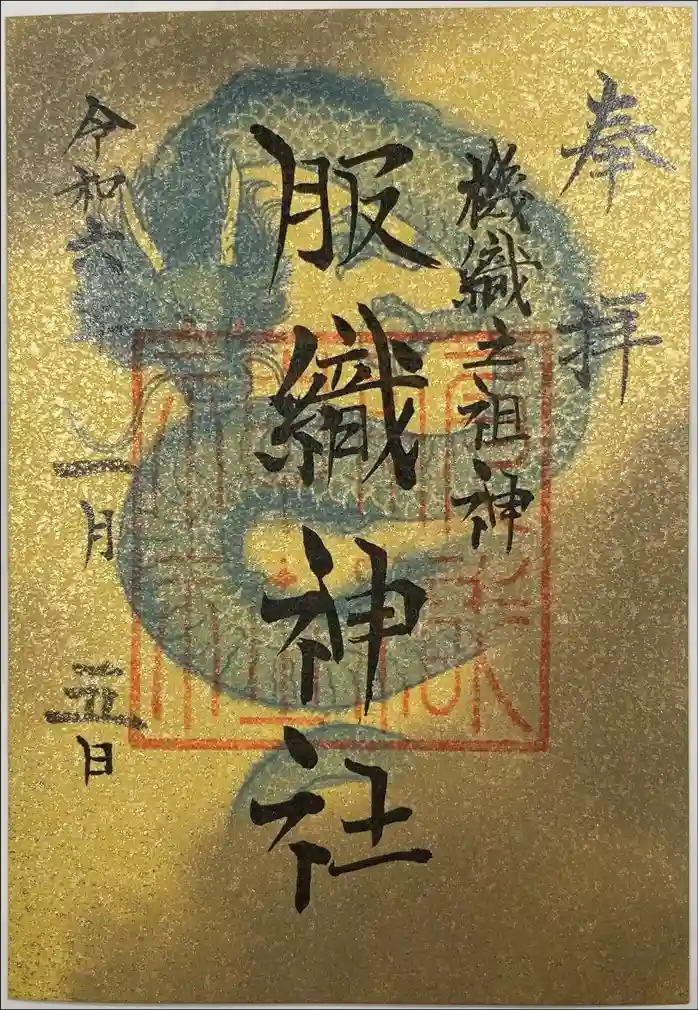 奉拝
機織之祖神
服織神社
令和六年
一月
五日